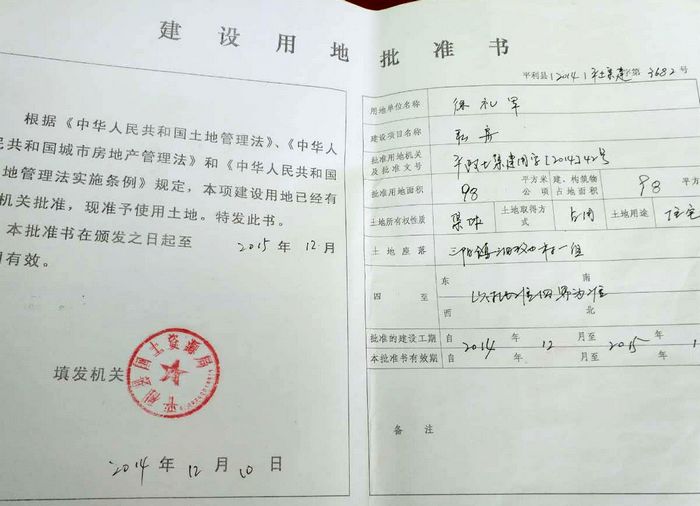 建设用地批准书
根据《中华人民共和国土地管理法》、《中华人
民共和国城市房地产管理法》和《中华人民共和国
地管理法实施条例》规定，本项建设用地已经有
机关批准，现准予使用土地。特发此书。
本批准书在颁发之日起至 2015 年 12 月
有效。
填发机关
平利县国土资源局
2014 年 12 月 10 日
平利县(2014)平土集建字第 3682 号
用地单位名称 徐礼军
建设项目名称 私房
批准用地机关及批准文号 平政土集建用字[2014]42号
批准用地面积 98 平方米 公项 建、构筑物占地面积 98 平方
土地所有权性质 集体 土地取得方式 占用 土地用途 住宅
土地座落 三阳镇 村一组
四至 东 南
以 四界为准
西 北
批准的建设工期 自 2014 年 12 月至 2015 年 1
本批准书有效期 自 年 月至 年
备注